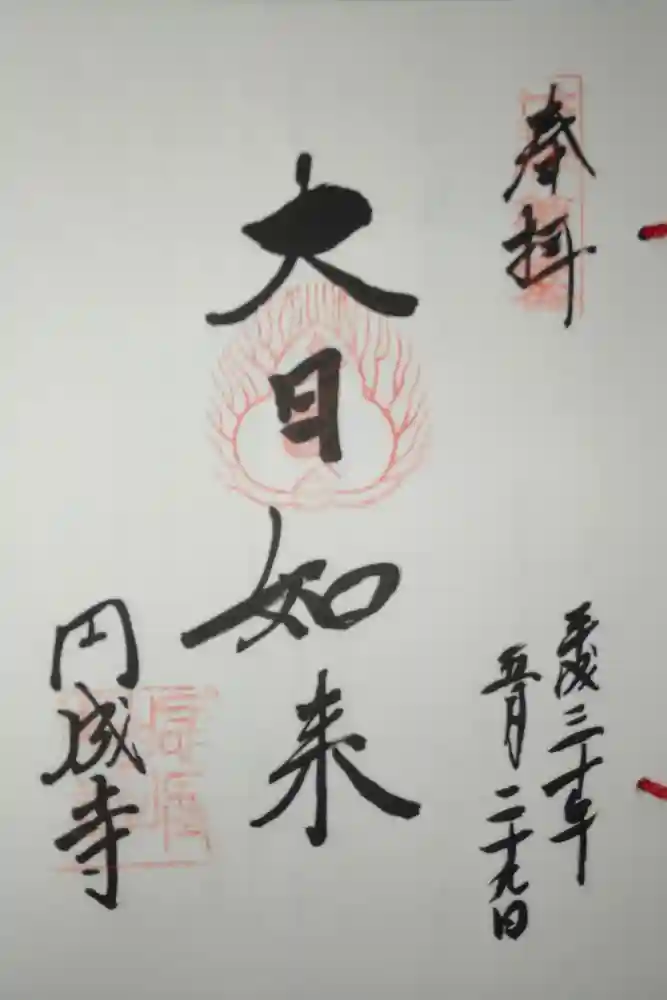 奉拝
平成三十年
五月二十九日
大日如来
円成寺